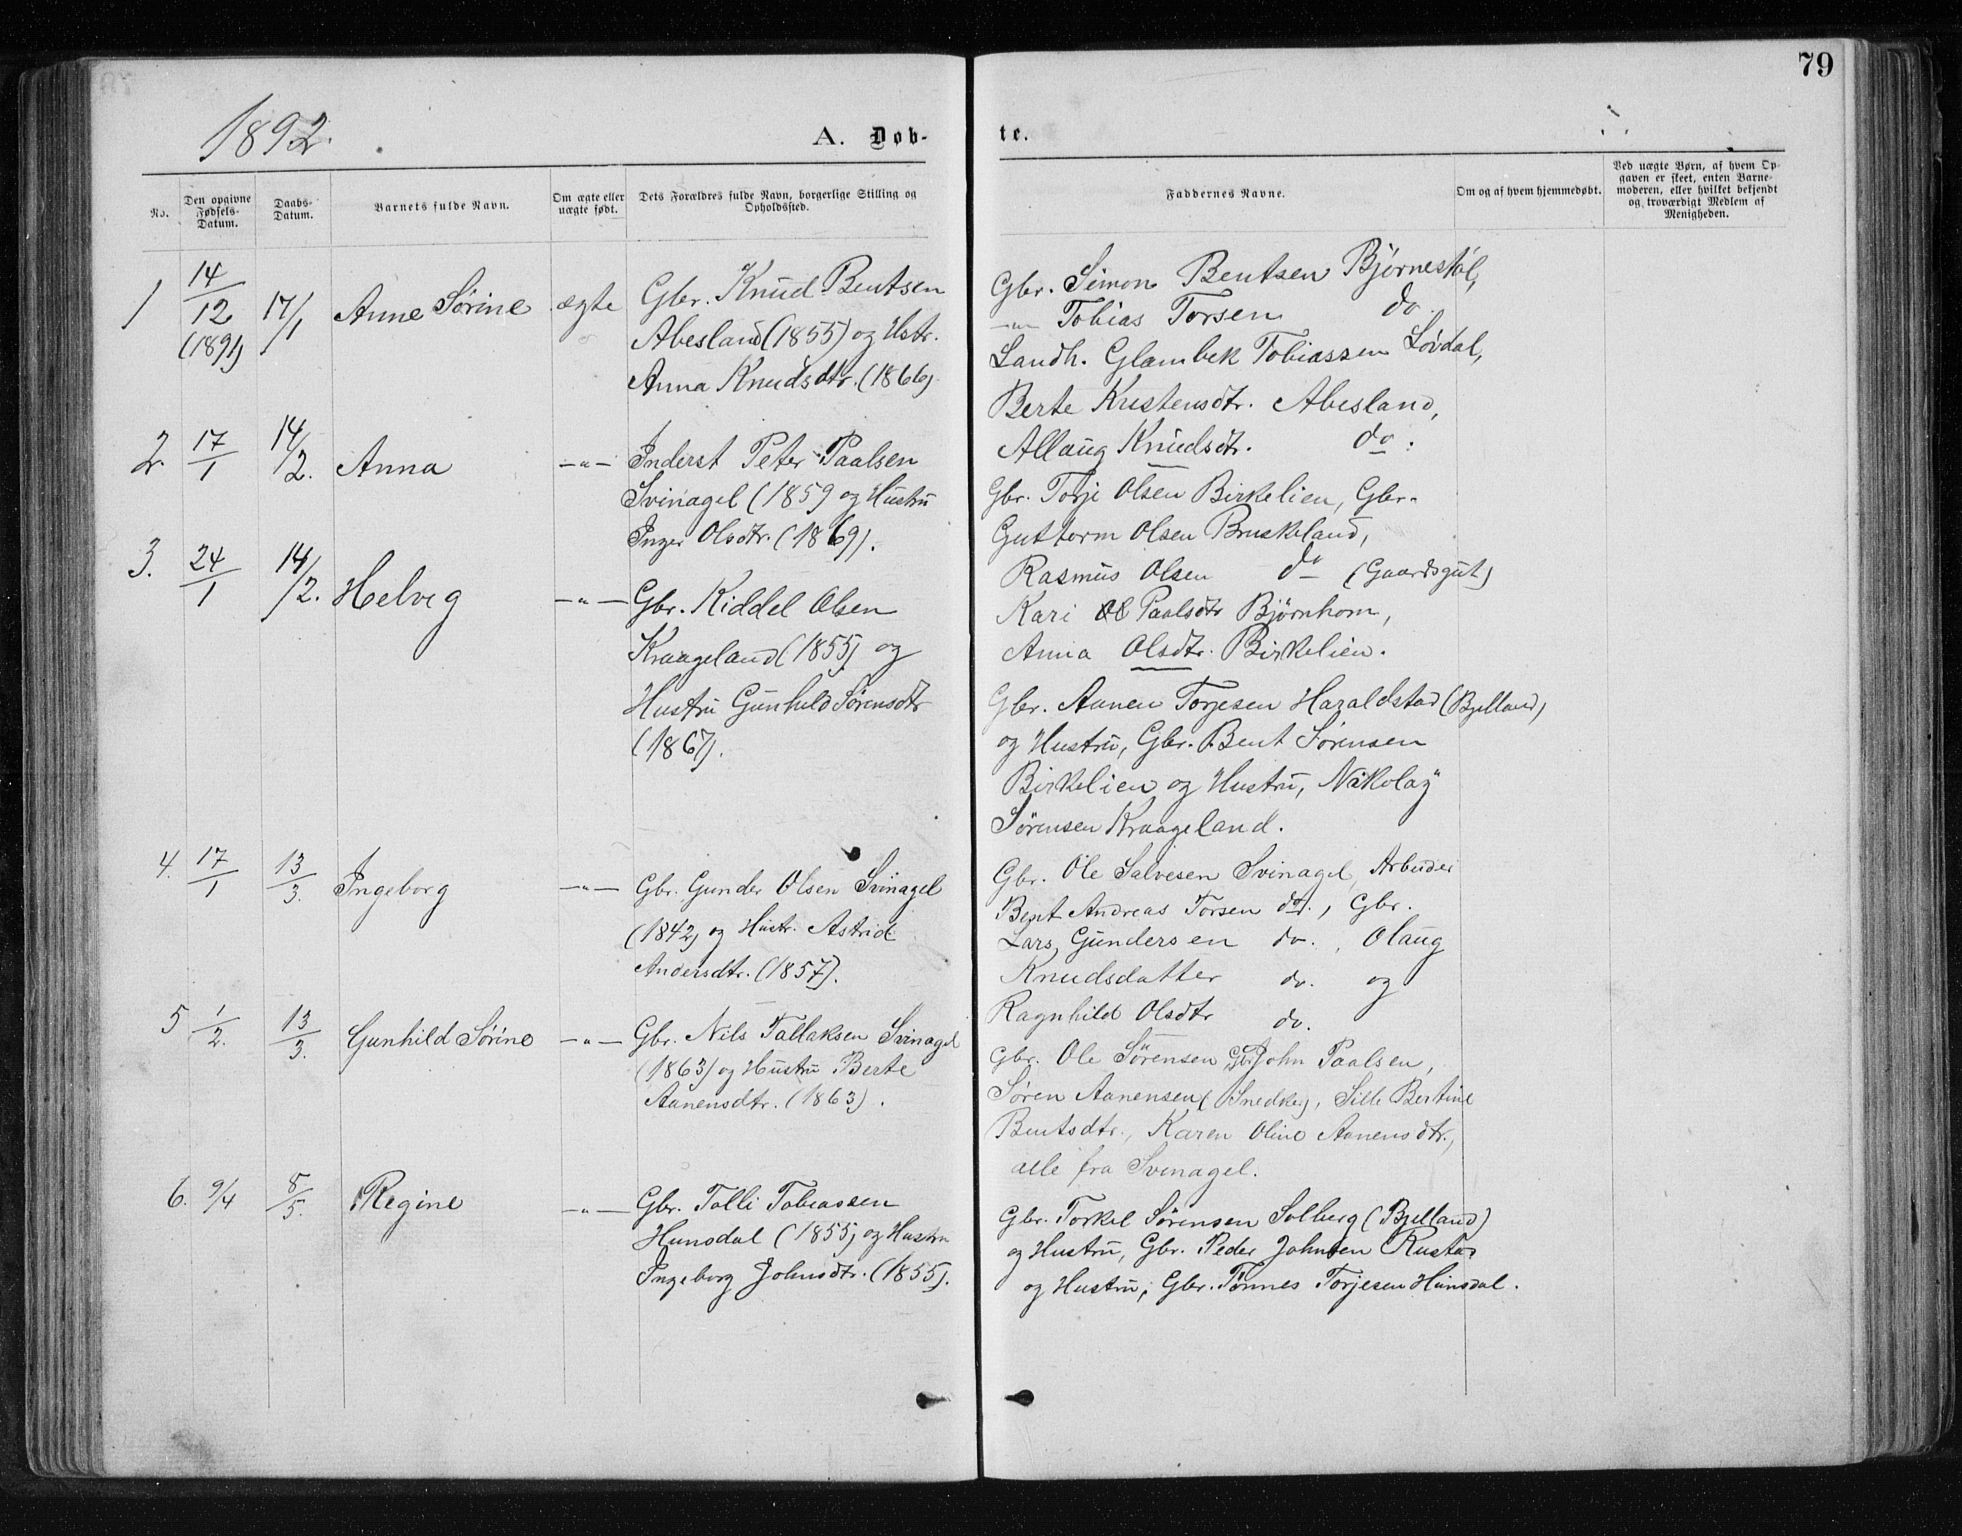 79
1892.
A. Døb-
te.
No.
Den opgivne Fødsels-Datum.
Daabs-Datum.
Barnets fulde Navn.
Om ægte eller uægte født.
Dets Forældres fulde Navn, borgerlige Stilling og Opholdssted.
Faddernes Navne.
Om og af hvem hjemmedøbt.
Ved uægte Børn, af hvem Op-
gaven er skeet, enten Barne-
moderen, eller hvilket bekjendt
og troværdigt Medlem af
Menigheden.
1 14/12 (1891) 17/1 Anne Sørine ægte Gbr. Knud Bentsen
Abesland (1855) og Hstr.
Anna Knudsdtr. (1866).
Gbr. Simon Bentsen Bjørnestøl,
—"— Tobias Torsen do
Landh. Glambek Tobiassen Løvdal,
Berte Kristensdtr. Abesland,
Allaug Knudsdtr. do.
2. 17/1 14/2. Anna —"— Inderst Peter Paalsen
Svinagel (1859 og Hustru
Inger Olsdtr. (1869).
Gbr. Torje Olsen Birkelien, Gbr.
Guttorm Olsen Bruskeland,
Rasmus Olsen do (Gaardsgut)
Kari Paalsdtr Bjørnhom,
Anna Olsdtr. Birkelien.
3. 24/1 14/2. Helvig —"— Gbr. Kiddel Olsen
Kraageland (1855) og
Hustru Gunhild Sørensdtr
(1867).
Gbr. Aanen Torjesen Haraldstad (Bjelland)
og Hustru, Gbr. Bent Sørensen
Birkelien og Hustru, Nikolay
Sørensen Kraageland.
4. 17/1 13/3. Ingeborg —"— Gbr. Gunder Olsen Svinagel
(1842) og Hustr. Astrid
Andersdtr. (1857).
Gbr. Ole Salvesen Svinagel, Arbeider
Bent Andreas Torsen do., Gbr.
Lars Gundersen do., Olaug
Knudsdatter do. og
Ragnhild Olsdtr do.
5 1/2. 13/3. Gunhild Sørine —"— Gbr. Nils Tallaksen Svinagel
(1863) og Hustru Berte
Aanensdtr. (1863).
Gbr. Ole Sørensen, Gbr John Paalsen,
Søren Aanensen (Snedker), Sille Bertine
Bentsdtr., Karen Oline Aanensdtr.,
alle fra Svinagel.
6. 9/4 8/5. Regine —"— Gbr. Talli Tobiassen
Hunsdal (1855) og Hustru
Ingeborg Johnsdtr. (1855).
Gbr. Torkel Sørensen Solberg (Bjelland)
og Hustru, Gbr. Peder Johnsen Rusta
og Hustru, Gbr. Tønnes Torjesen Hunsdal.